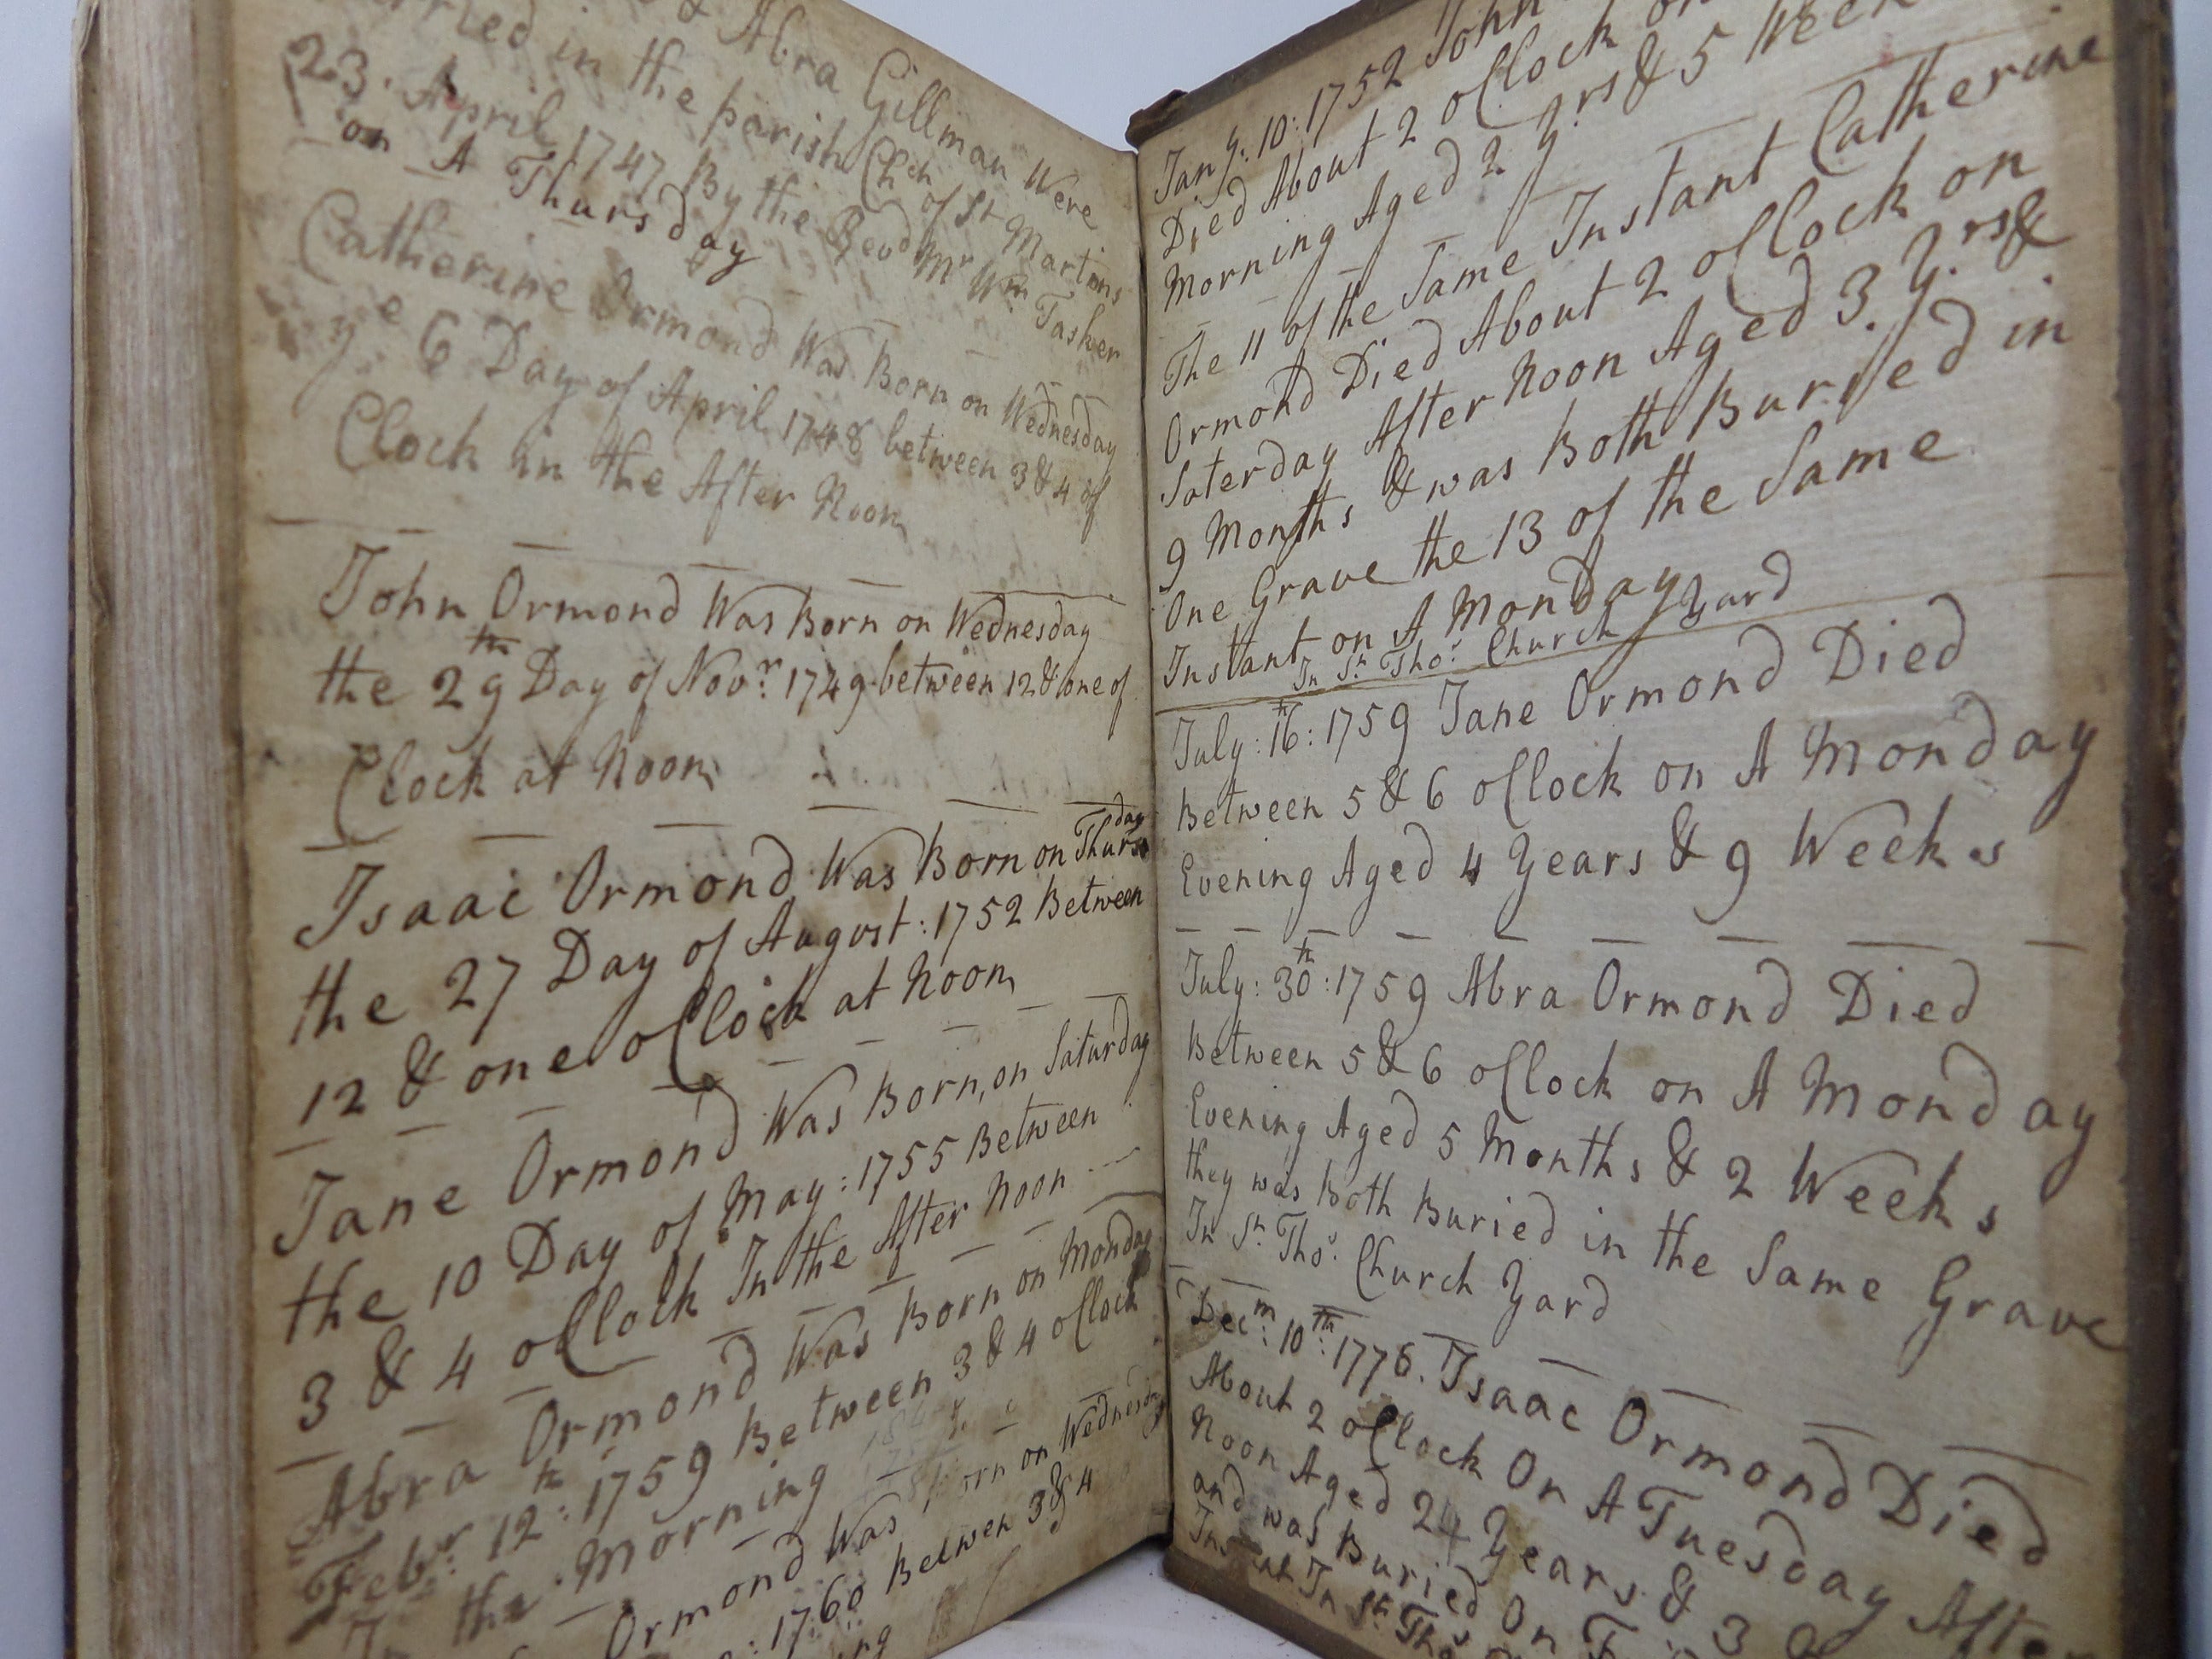 & Abra Gillman Were
in the parish Chch of St Martins
23. April 1747 By the Revd Mr Wm Tasker
on A Thursday
Catherine Ormond Was Born on Wednesday
ye 6 Day of April 1748 between 3 & 4 of
Clock in the After Noon
John Ormond Was Born on Wednesday
the 29th Day of Novr: 1749 between 12 & one of
Clock at Noon
Isaac Ormond Was Born on Thursday
the 27 Day of August: 1752 Between
12 & one oClock at Noon
Jane Ormond Was Born, on Saturday
the 10 Day of May: 1755 Between
3 & 4 oClock In the After Noon
Abra Ormond Was Born on Monday
Febr: 12th: 1759 Between 3 & 4 oClock
In the Morning
Ormond Was Born on Wednesday
: 1760 Betwen 3 & 4
Jany: 10: 1752 John
Died About 2 oClock on
Morning Aged 2 Yrs & 5 Week
The 11 of the Same Instant Catherine
Ormond Died About 2 oClock on
Saterday After Noon Aged 3 Yrs &
9 Months & was Both Buried in
One Grave the 13 of the Same
Instant on A Monday
In St Thos Church Yard
July: 16th: 1759 Jane Ormond Died
Between 5 & 6 oClock on A Monday
Evening Aged 4 Years & 9 Weeks
July: 30th: 1759 Abra Ormond Died
Between 5 & 6 oClock on A Monday
Evening Aged 5 Months & 2 Weeks
they was Both Buried in the Same Grave
In St Thos: Church Yard
Decm: 10th: 1776. Isaac Ormond Died
About 2 oClock On A Tuesday After
Noon Aged 24 Years & 3
and was Buried On
Instant In St Thos